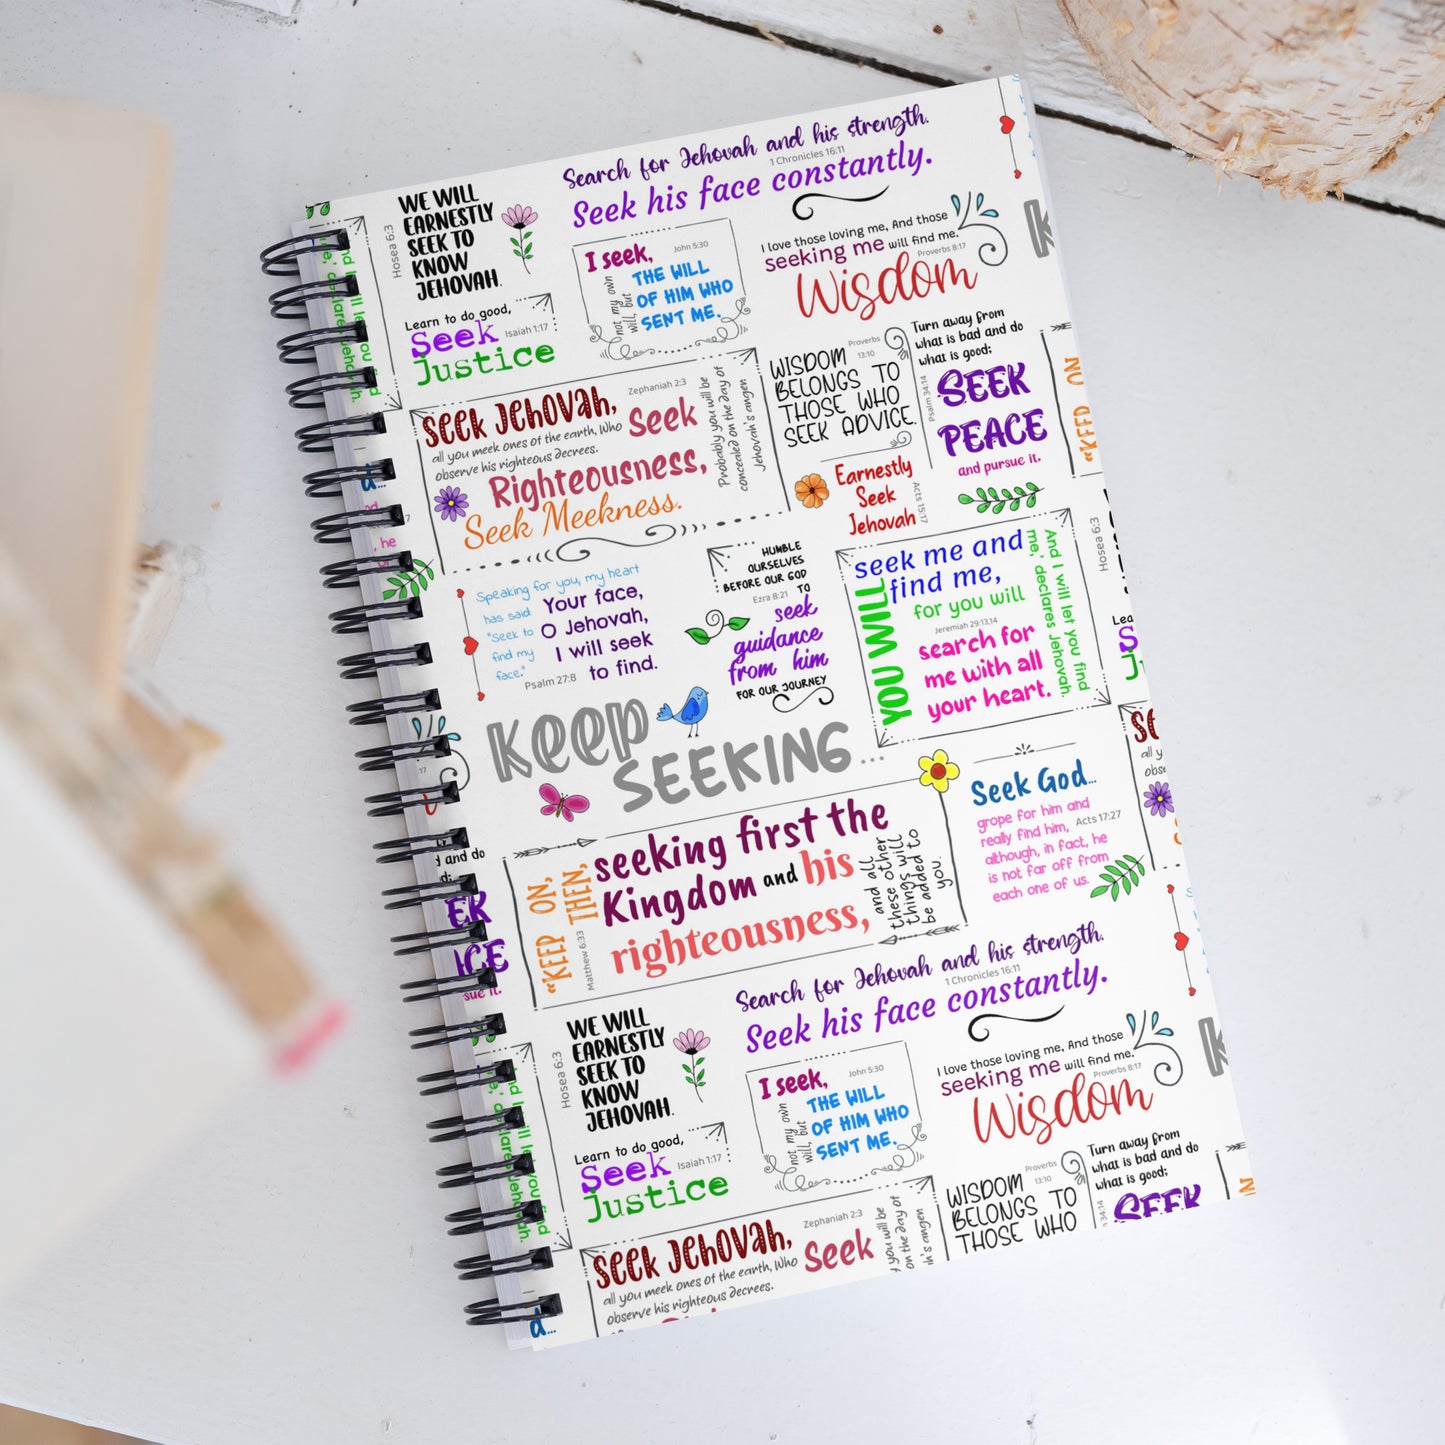 Search for Jehovah and his strength.
1 Chronicles 16:11
Seek his face constantly.
WE WILL
EARNESTLY
SEEK TO
KNOW
JEHOVAH.
Hosea 6:3
I seek,
John 5:30
not my own
will, but
THE WILL
OF HIM WHO
SENT ME.
I love those loving me, And those
seeking me will find me.
Proverbs 8:17
Wisdom
K
Learn to do good,
Seek
Isaiah 1:17
Justice
And I will let you find
me,' declares Jehovah.
SEEK JEHOVAH,
Zephaniah 2:3
all you meek ones of the earth, Who
observe his righteous decrees.
Seek
Righteousness,
Seek Meekness.
Probably you will be
concealed on the day of
Jehovah's anger.
WISDOM
Proverbs
13:10
BELONGS TO
THOSE WHO
SEEK ADVICE.
Turn away from
what is bad and do
what is good;
Psalm 34:14
SEEK
PEACE
and pursue it.
"KEEP ON
Earnestly
Seek
Jehovah
Acts 15:17
d...
, he
Speaking for you, my heart
has said
"Seek to
find my
face."
Your face,
O Jehovah,
I will seek
to find.
Psalm 27:8
HUMBLE
OURSELVES
BEFORE OUR GOD
Ezra 8:21
TO
seek
guidance
from him
FOR OUR JOURNEY
YOU WILL
seek me and
find me,
for you will
Jeremiah 29:13,14
search for
me with all
your heart.
And I will let you find
me,' declares Jehovah
Hosea 6:3
Lea
S
J
KEEP
SEEKING...
:17
"KEEP ON,
THEN,
Matthew 6:33
seeking first the
Kingdom and his
righteousness,
and all
these other
things will
be added to
you.
Seek God...
grope for him and
really find him,
Acts 17:27
although, in fact, he
is not far off from
each one of us.
SE
all y
obse
d and do
d;
EK
ACE
sue it.
Search for Jehovah and his strength.
1 Chronicles 16:11
Seek his face constantly.
WE WILL
EARNESTLY
SEEK TO
KNOW
JEHOVAH.
Hosea 6:3
I seek,
John 5:30
not my own
will, but
THE WILL
OF HIM WHO
SENT ME.
I love those loving me, And those
seeking me will find me.
Proverbs 8:17
Wisdom
K
Learn to do good,
Seek
Isaiah 1:17
Justice
SEEK JEHOVAH,
Zephaniah 2:3
all you meek ones of the earth, Who
observe his righteous decrees.
Seek
y you will be
on the day of
h's anger.
WISDOM
Proverbs
13:10
BELONGS TO
THOSE WHO
Turn away from
what is bad and do
what is good;
34:14
SEEK
d...